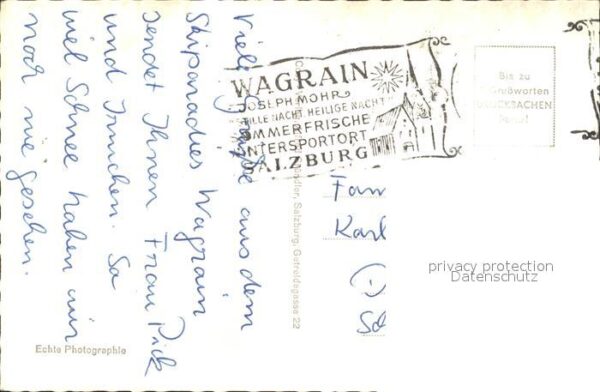 Viele Grüße aus dem
Skiparadies Wagrain
sendet Ihnen Frau Pick
und Irmchen. So
viel Schnee haben wir
noch nie gesehen.
WAGRAIN
JOSEPH MOHR
STILLE NACHT, HEILIGE NACHT
SOMMERFRISCHE
WINTERSPORTORT
SALZBURG
Bis zu
Grußworten
DRUCKSACHEN
Fam
Karl
(-)
Sd
Salzburg, Getreidegasse 22
Echte Photographie
privacy protection
Datenschutz